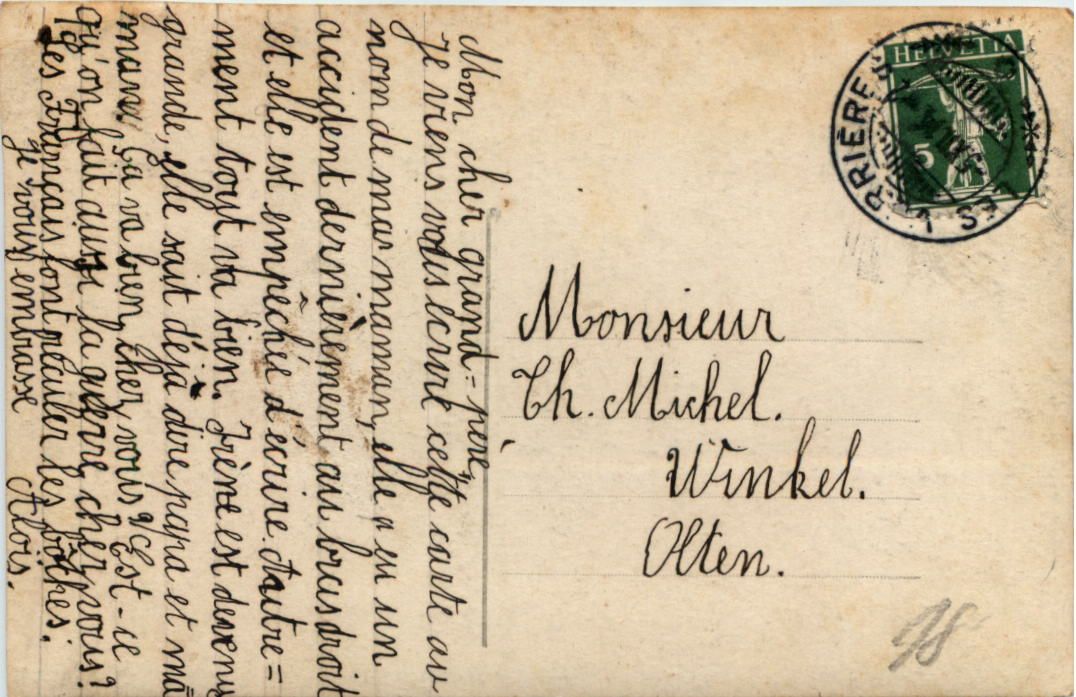 Mon cher grand-père,
Je viens vous ecrire cette carte au
nom de mar maman, elle a eu un
accident dernièrement au bras droit
et elle est empêchés d'écrire. Autre=
ment tout va bien. Irène est devenu
grande, elle sait déjà dire papa et mā
man. Ça va bien, cher vous? Est-ce
qu'on fait aussi la guerre, cher vous?
Les Français font reculer les boches.
Je vous embrasse
Aloïs.
Monsieur
Th. Michel.
Winkel.
Olten.
HELVETIA
5
LES VERRIÈRES
98